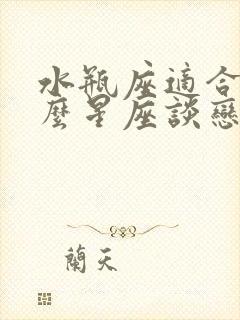 水瓶座適合
麼星座談戀
蘭天